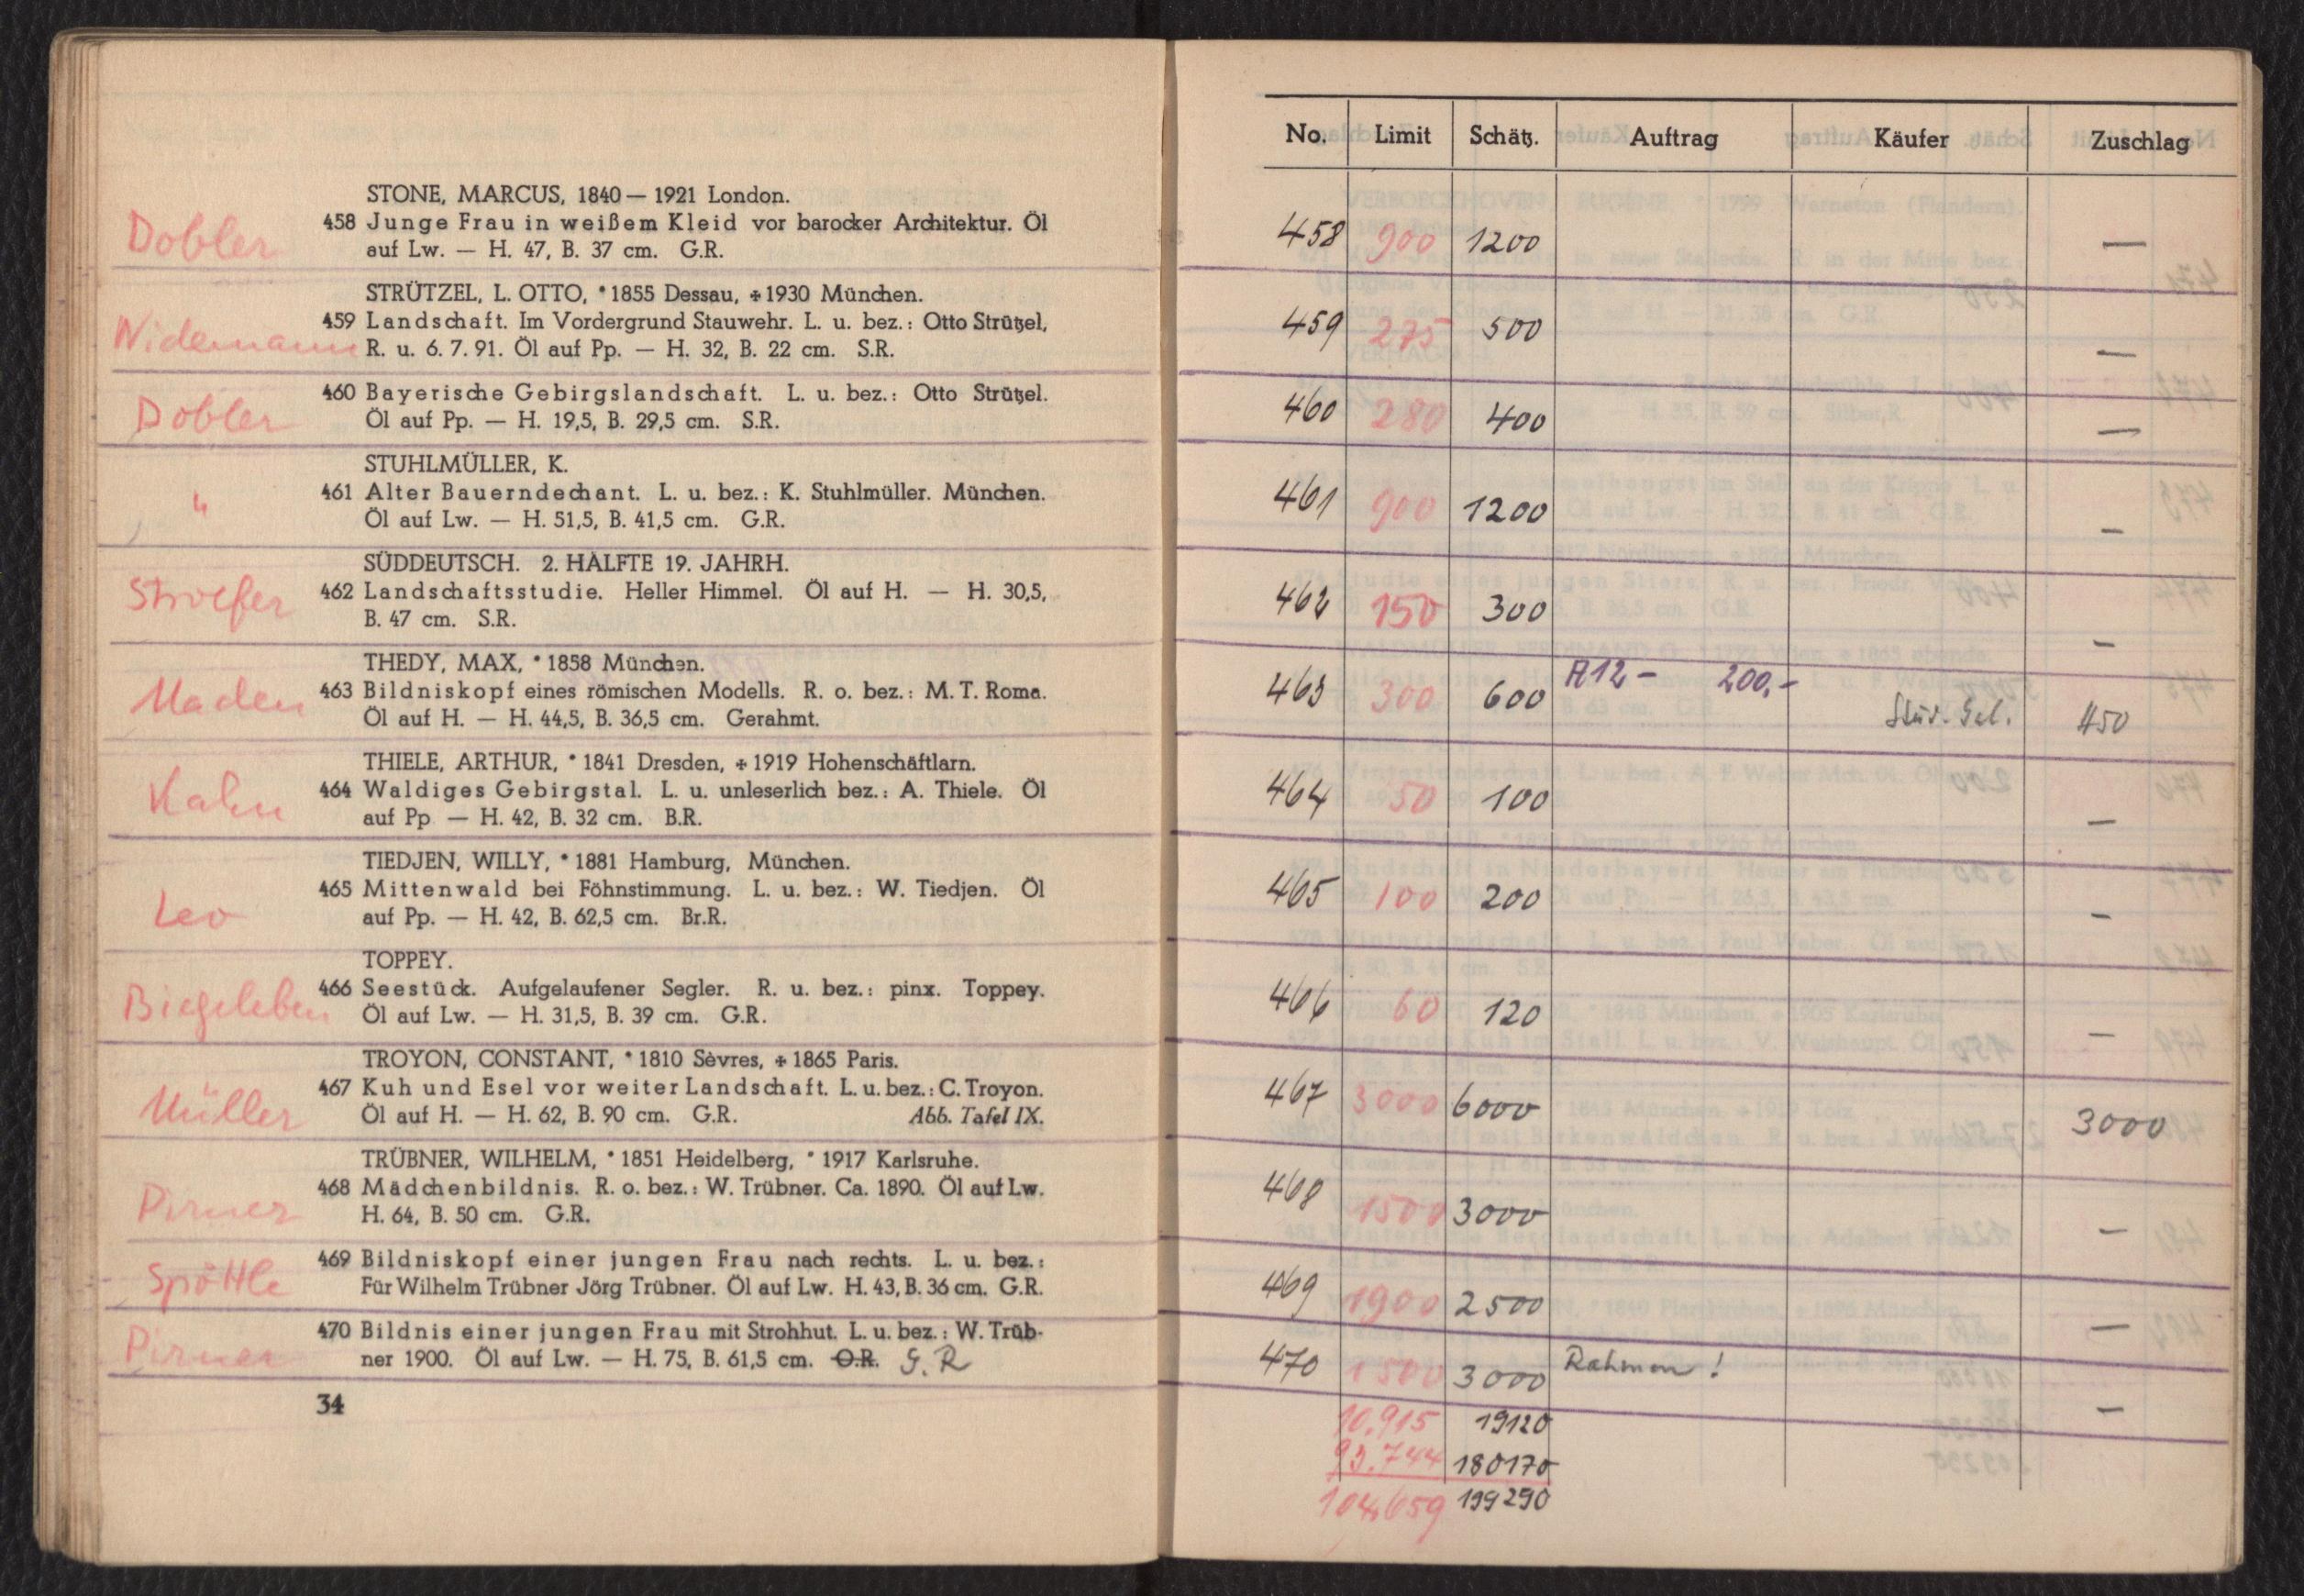 STONE, MARCUS, 1840 — 1921 London.
Dobler
458 Junge Frau in weißem Kleid vor barocker Architektur. Öl
auf Lw. — H. 47, B. 37 cm. G.R.
STRÜTZEL, L. OTTO, * 1855 Dessau, + 1930 München.
Widemann
459 Landschaft. Im Vordergrund Stauwehr. L. u. bez.: Otto Strützel,
R. u. 6. 7. 91. Öl auf Pp. — H. 32, B. 22 cm. S.R.
Dobler
460 Bayerische Gebirgslandschaft. L. u. bez.: Otto Strützel.
Öl auf Pp. — H. 19,5, B. 29,5 cm. S.R.
STUHLMÜLLER, K.
"
461 Alter Bauerndechant. L. u. bez.: K. Stuhlmüller. München.
Öl auf Lw. — H. 51,5, B. 41,5 cm. G.R.
SÜDDEUTSCH. 2. HÄLFTE 19. JAHRH.
Stroefer
462 Landschaftsstudie. Heller Himmel. Öl auf H. — H. 30,5,
B. 47 cm. S.R.
THEDY, MAX, * 1858 München.
Maden
463 Bildniskopf eines römischen Modells. R. o. bez.: M. T. Roma.
Öl auf H. — H. 44,5, B. 36,5 cm. Gerahmt.
THIELE, ARTHUR, * 1841 Dresden, + 1919 Hohenschäftlarn.
Kahn
464 Waldiges Gebirgstal. L. u. unleserlich bez.: A. Thiele. Öl
auf Pp — H. 42, B. 32 cm. B.R.
TIEDJEN, WILLY, * 1881 Hamburg, München.
Leo
465 Mittenwald bei Föhnstimmung. L. u. bez.: W. Tiedjen. Öl
auf Pp. — H. 42, B. 62,5 cm. Br.R.
TOPPEY.
Biegeleben
466 Seestück. Aufgelaufener Segler. R. u. bez.: pinx. Toppey.
Öl auf Lw. — H. 31,5, B. 39 cm. G.R.
TROYON, CONSTANT, * 1810 Sèvres, + 1865 Paris.
Müller
467 Kuh und Esel vor weiter Landschaft. L. u. bez.: C. Troyon.
Öl auf H. — H. 62, B. 90 cm. G.R. Abb. Tafel IX.
TRÜBNER, WILHELM, * 1851 Heidelberg, * 1917 Karlsruhe.
Pirner
468 Mädchenbildnis. R. o. bez.: W. Trübner. Ca. 1890. Öl auf Lw.
H. 64, B. 50 cm. G.R.
Spöttle
469 Bildniskopf einer jungen Frau nach rechts. L. u. bez.:
Für Wilhelm Trübner Jörg Trübner. Öl auf Lw. H. 43, B. 36 cm. G.R.
Pirner
470 Bildnis einer jungen Frau mit Strohhut. L. u. bez.: W. Trüb-
ner 1900. Öl auf Lw. — H. 75, B. 61,5 cm. O.R. G.R
34
No. Limit Schätz. Auftrag Käufer Zuschlag
458 900 1200 —
459 275 500 —
460 280 400 —
461 900 1200 —
462 150 300 —
463 300 600 A12 - 200,- 450
464 50 100 —
465 100 200 —
466 60 120 —
467 3000 6000 3000
468 1500 3000 —
469 1900 2500 —
470 1500 3000 Rahmen! —
10.915 19120
93.744 180170
104,659 199290